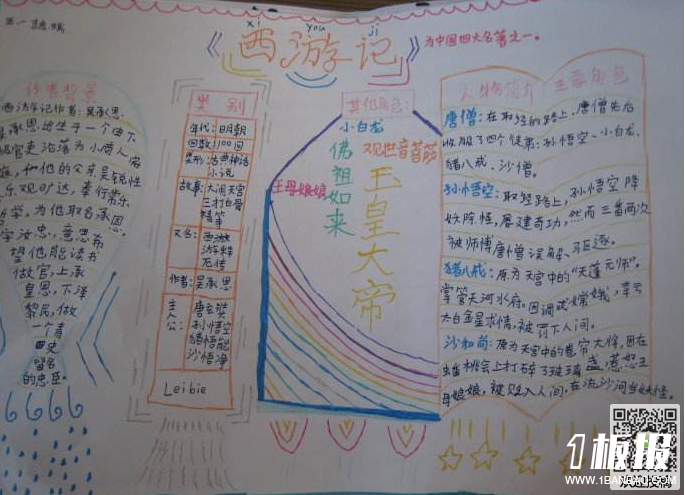 xi you ji
《西游记》
为中国四大名著之一。
作者背景
西游记作者：吴承恩。
吴承恩出生于一个由下
级官吏沦落为小商人
家庭，和他的父亲吴锐性
乐观旷达，奉行常乐
哲学，为他取名承恩，
字汝忠，意思希
望他能读书
做官，上承
皇恩，下泽
黎民，做
一个青
史
留名
的忠臣。
类别
年代：明朝
回数：100回
类形：浩典神话
小说
故事：大闹天宫
三打白骨
精等
又名：西游
游释
厄传
作者：吴承恩
主人公：唐玄奘
孙悟空
猪悟能
沙悟净
Leibie
其他角色：
小白龙
观世音菩萨
佛祖如来
王母娘娘
玉皇大帝
人物简介 主要角色
唐僧：在取经的路上，唐僧先后
收服了四个徒弟：孙悟空、小白龙、
猪八戒、沙僧。
孙悟空：取经路上，孙悟空降
妖除怪，屡建奇功，然而三番两次
被师傅唐僧误解、驱逐。
猪八戒：原为天宫中的“天蓬元帅”，
掌管天河水府。因调戏嫦娥，幸云
太白金星求情，被罚下人间。
沙和尚：原为天宫中的卷帘大将，因在
蟠桃会上打碎了琉璃盏，惹怒王
母娘娘，被贬入人间，在流沙河当妖怪。
1板报
WWW.1BANBAO.COM